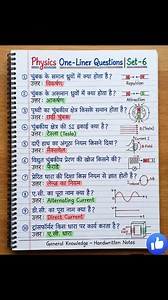 Physics One-Liner Questions | Set-6
1 चुंबक के समान ध्रुवों में क्या होता है?
उत्तर : विकर्षण
Repulsion
2 चुंबक के असमान ध्रुवों में क्या होता है?
उत्तर : आकर्षण
Attraction
3 पृथ्वी का चुंबकीय क्षेत्र किसके समान होता है?
उत्तर : छड़ी चुंबक
4 चुंबकीय क्षेत्र की SI इकाई क्या है?
उत्तर : टेस्ला (Tesla)
B (Tesla)
5 दाएँ हाथ का अंगूठा नियम किसने दिया?
6 विद्युत चुंबकीय प्रेरण की खोज किसने की?
उत्तर : फैराडे
7 प्रेरित धारा की दिशा किस नियम से ज्ञात होती है?
उत्तर : लेन्ज का नियम
8 ए.सी. का पूरा नाम क्या है?
उत्तर : Alternating Current
9 डी.सी. का पूरा नाम क्या है?
उत्तर : Direct Current
10 ट्रांसफॉर्मर किस धारा पर कार्य करता है?
उत्तर : ए.सी. धारा
General Knowledge - Handwritten Notes